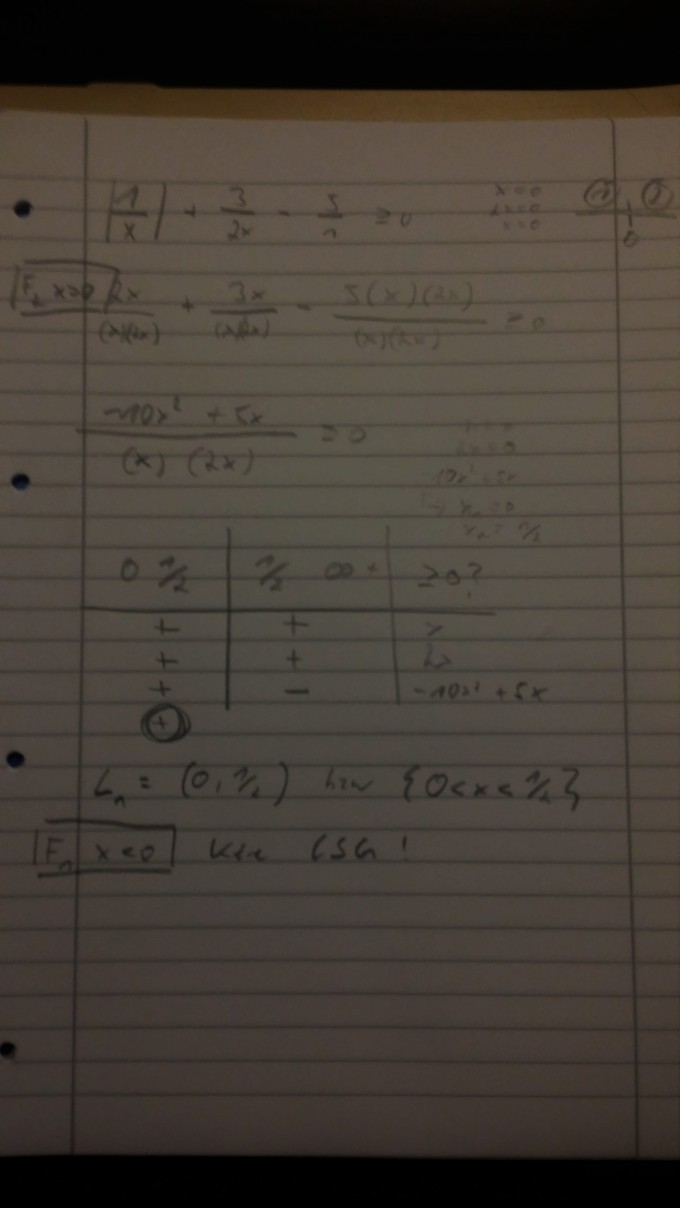 |1/x| + 3/2x - 5/1 ≥ 0 x=0 2x=0 x=0 ① ② 0
F₂ x>0 2x/(x)(2x) + 3x/(x)(2x) - 5(x)(2x)/(x)(2x) ≥ 0
-10x² + 5x/(x) (2x) ≥ 0
2x=0
-10x²+5x
↳ x₁=0
x₂= 1/2
0 1/2 | 1/2 ∞+ | ≥0?
+ | + | x
+ | + | 2x
+ | - | -10x² + 5x
+
L₁ = (0, 1/2) bzw {0<x<1/2}
F₁ x<0 Keine LSG!